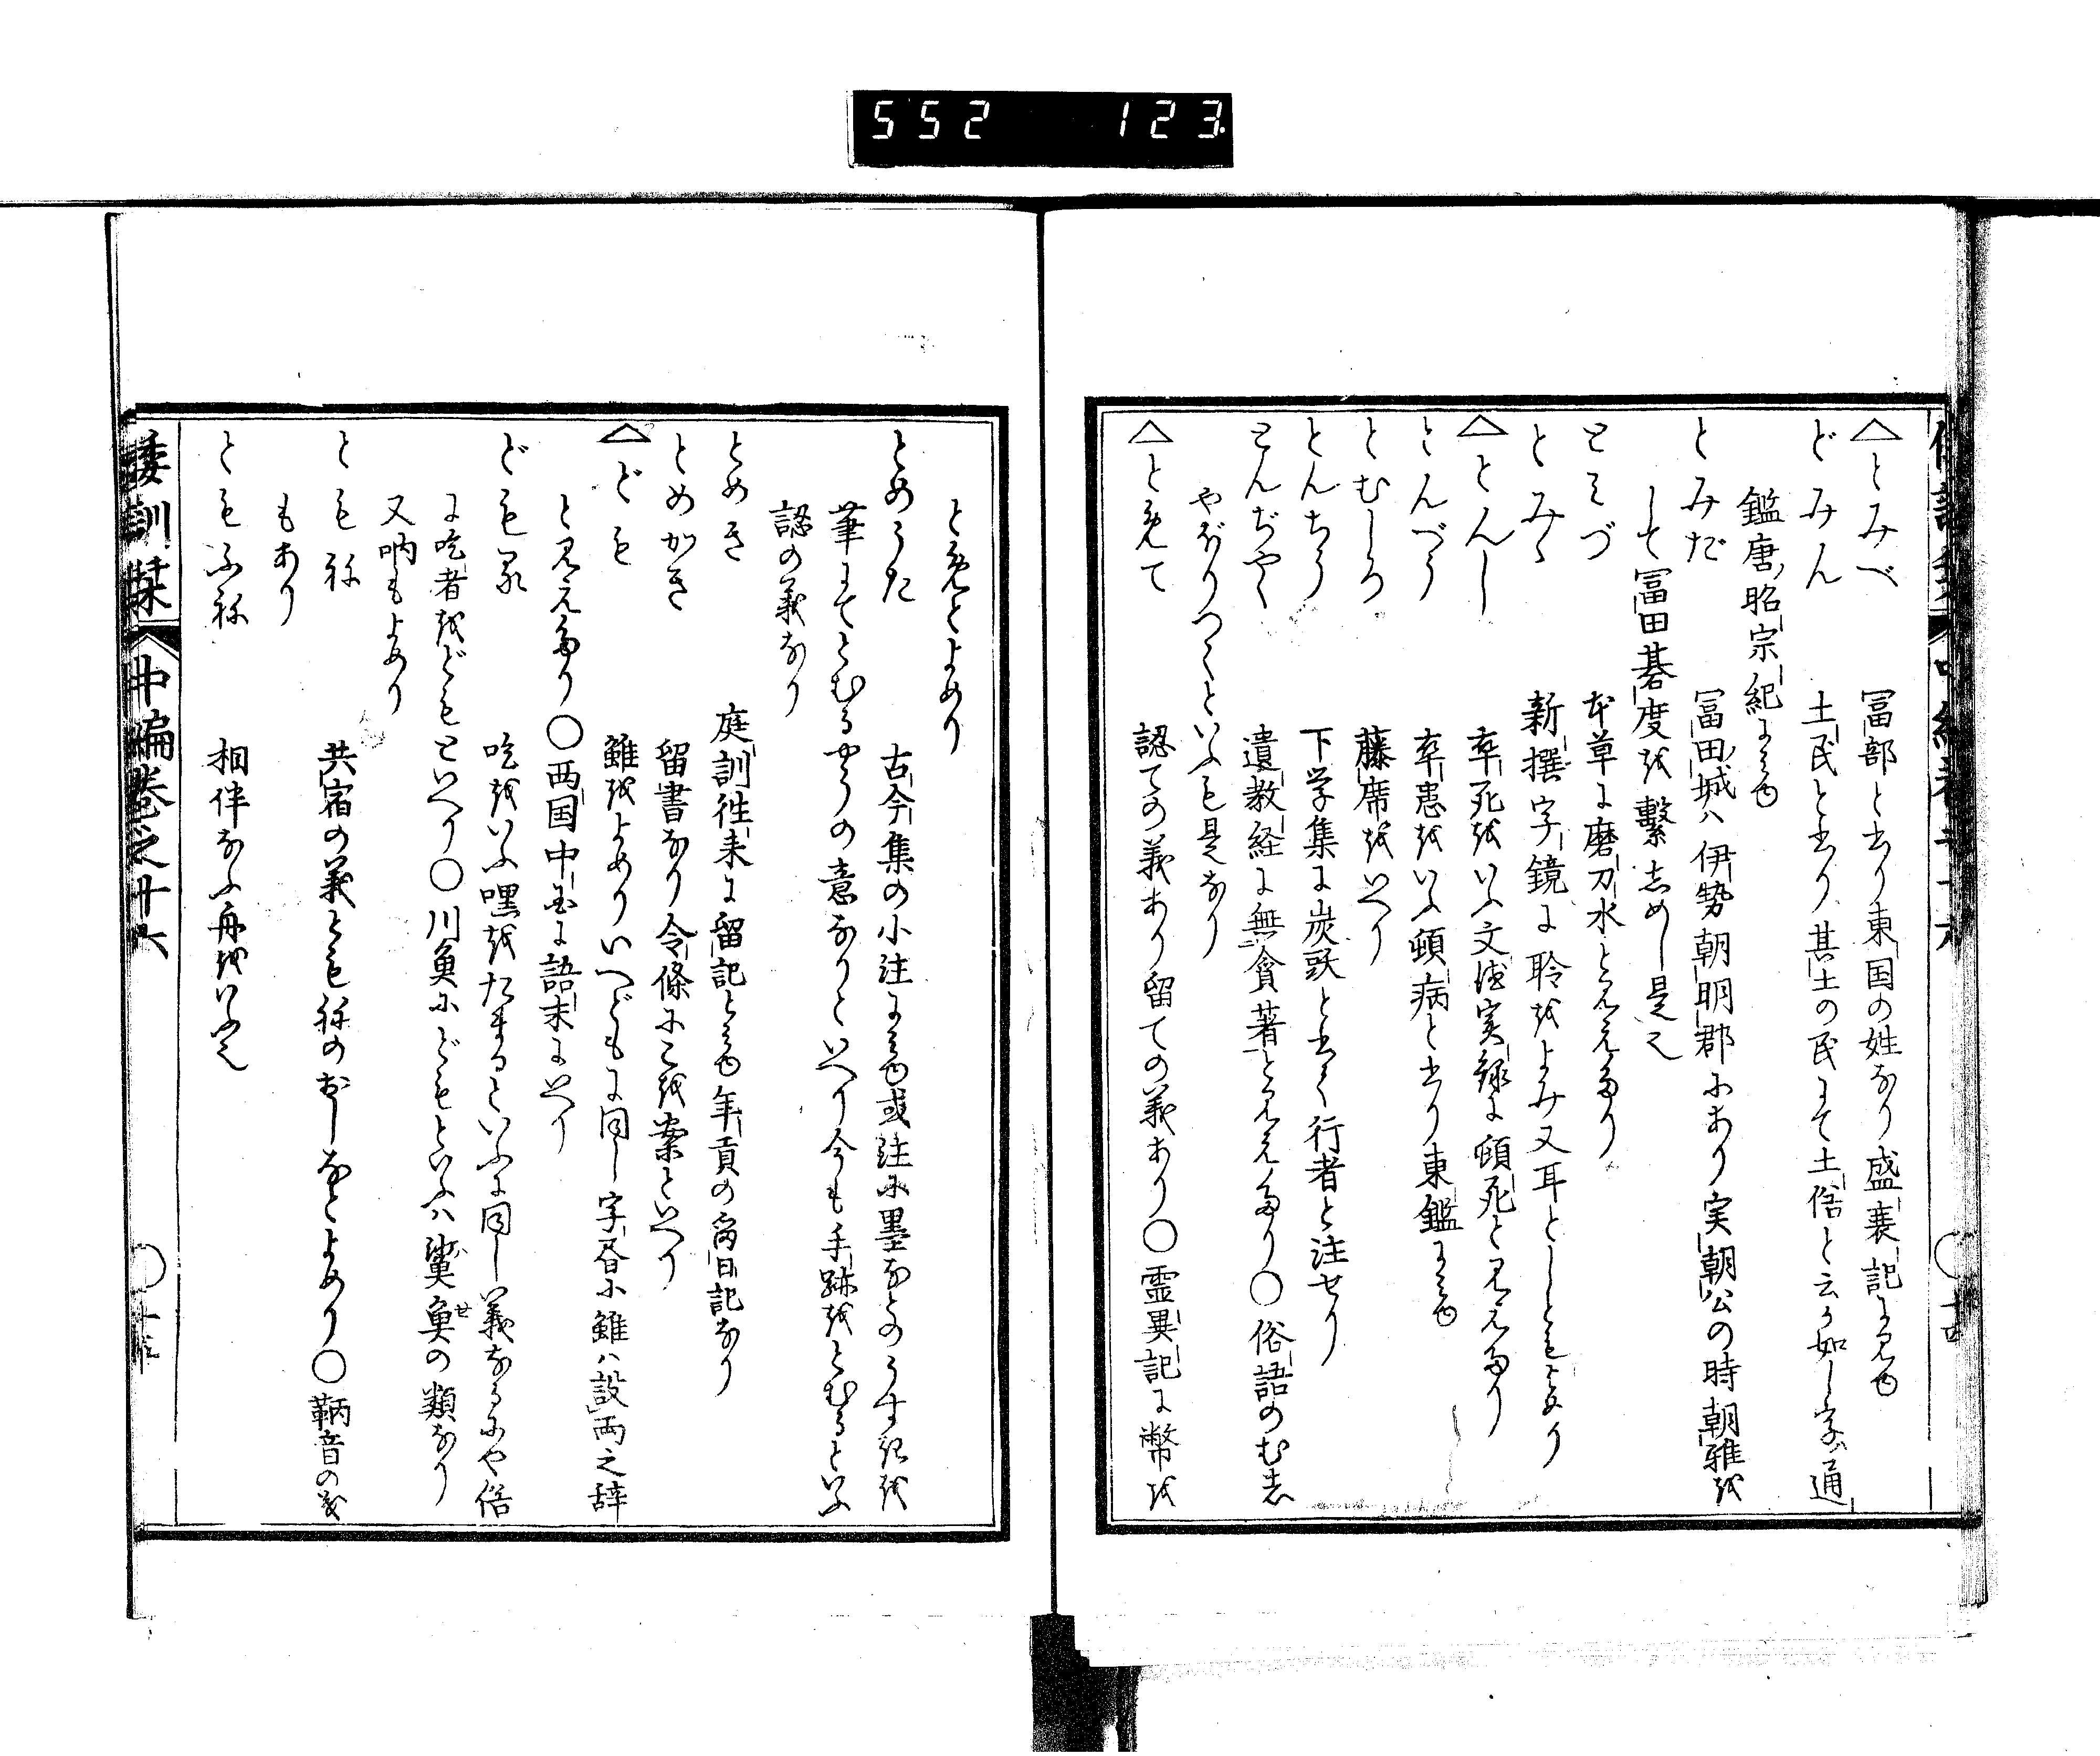 552 123.
△とみべ 冨部と書り東国の姓なり盛衰記に見ゆ
どみん 土民と書り其土の民にて土俗と云か如し字ハ通
鑑唐昭宗紀にみゆ
とみだ 冨田城ハ伊勢朝明郡にあり実朝公の時朝雅を
して冨田碁度を繋しめし是也
とみづ 本草に磨刀水と見えたり
とみゝ 新撰字鏡に聆をよみ又耳としともよめり
△とんし 卒死をいふ文徳実録に頓死と見えたり
とんべう 卒患をいふ頓病と書り東鑑にみゆ
とむしろ 藤席をいへり
とんちう 下学集に炭頭と書く行者と注せり
とんぢやく 遺教経に無貪著と見えたり○俗語のむさ
やぼりつくといふも是なり
△とめて 認ての義あり留ての義あり○霊異記に幣を
とめとよめり
とめうた 古今集の小注にみゆ或注に墨なとのうすきを
筆にてとむるやうの意なりといへり今も手跡をとむるといふ
認の義なり
とめき 庭訓徃来に留記とみゆ年貢の為日記なり
とめがき 留書なり令條にこを案といへり
△ども 雖をよめりいへどもに同し字書に雖ハ設両之辞
と見えたり○西国中国に語末にいへり
どもる 吃をいふ嘿をだまるといふに同し義なるにや俗
に吃者をどもといへり○川魚にどもといふハ鯊魚の類なり
又吶もよめり
とも祢 共宿の義とも祢のおしなとよめり○鞆音の義
もあり
ともふ祢 相伴なふ舟をいふ也
倭訓栞 中編巻之廿六